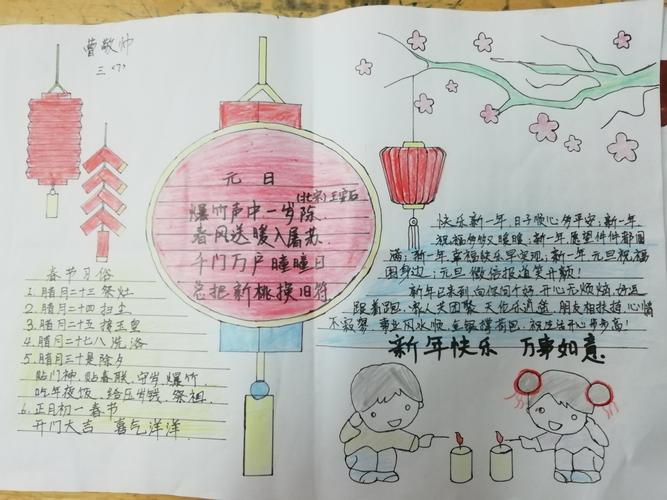 曹敬帅
三(7)
元日
(北宋)王安石
爆竹声中一岁除
春风送暖入屠苏
千门万户曈曈日
总把新桃换旧符
春节习俗
1.腊月二十三祭灶
2.腊月二十四扫尘
3.腊月二十五接玉皇
4.腊月二十七八洗浴
5.腊月三十是除夕
贴门神,贴春联,守岁,爆竹,
吃年夜饭,给压岁钱,祭祖
6.正月初一春节
开门大吉 喜气洋洋
快乐新一年,日子顺心多平安;新一年
祝福多多又暖暖;新一年愿望件件都圆
满;新一年幸福快乐早实现;新一年元旦祝福
围身边;元旦微信报道笑开颜!
新年已来到,向你问个好,开心无烦恼,好运
跟着跑,家人天团聚,天伦乐逍遥,朋友相扶持,心情
不寂寞,事业风水顺,金银撑荷包,祝生活开心步步高!
新年快乐 万事如意